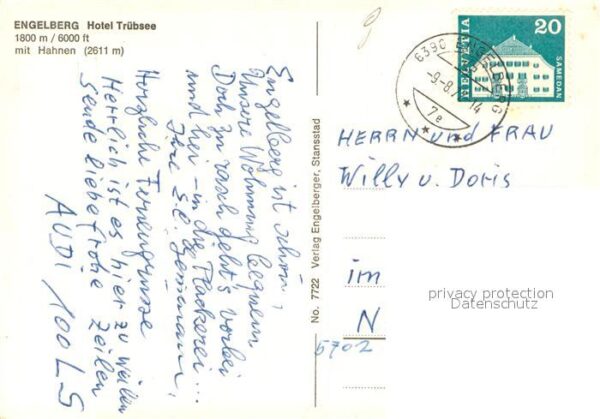 ENGELBERG Hotel Trübsee
1800 m / 6000 ft
mit Hahnen (2611 m)
Engelberg ist schön,
Unsere Wohnung bequem
Doch zu rasch geht's vorbei
und heim - in die Plackerei...
Ihre
Herzliche Feriengrüsse
Herrlich ist es hier zu weilen
sende liebe frohe Zeilen
AUDI 100 LS
No. 7722 Verlag Engelberger, Stansstad
6390 ENGELBERG
-9.-8. 14
7e
HELVETIA
20
SAMEDAN
HERRN und FRAU
Willy u. Doris
im
N
5702
privacy protection
Datenschutz